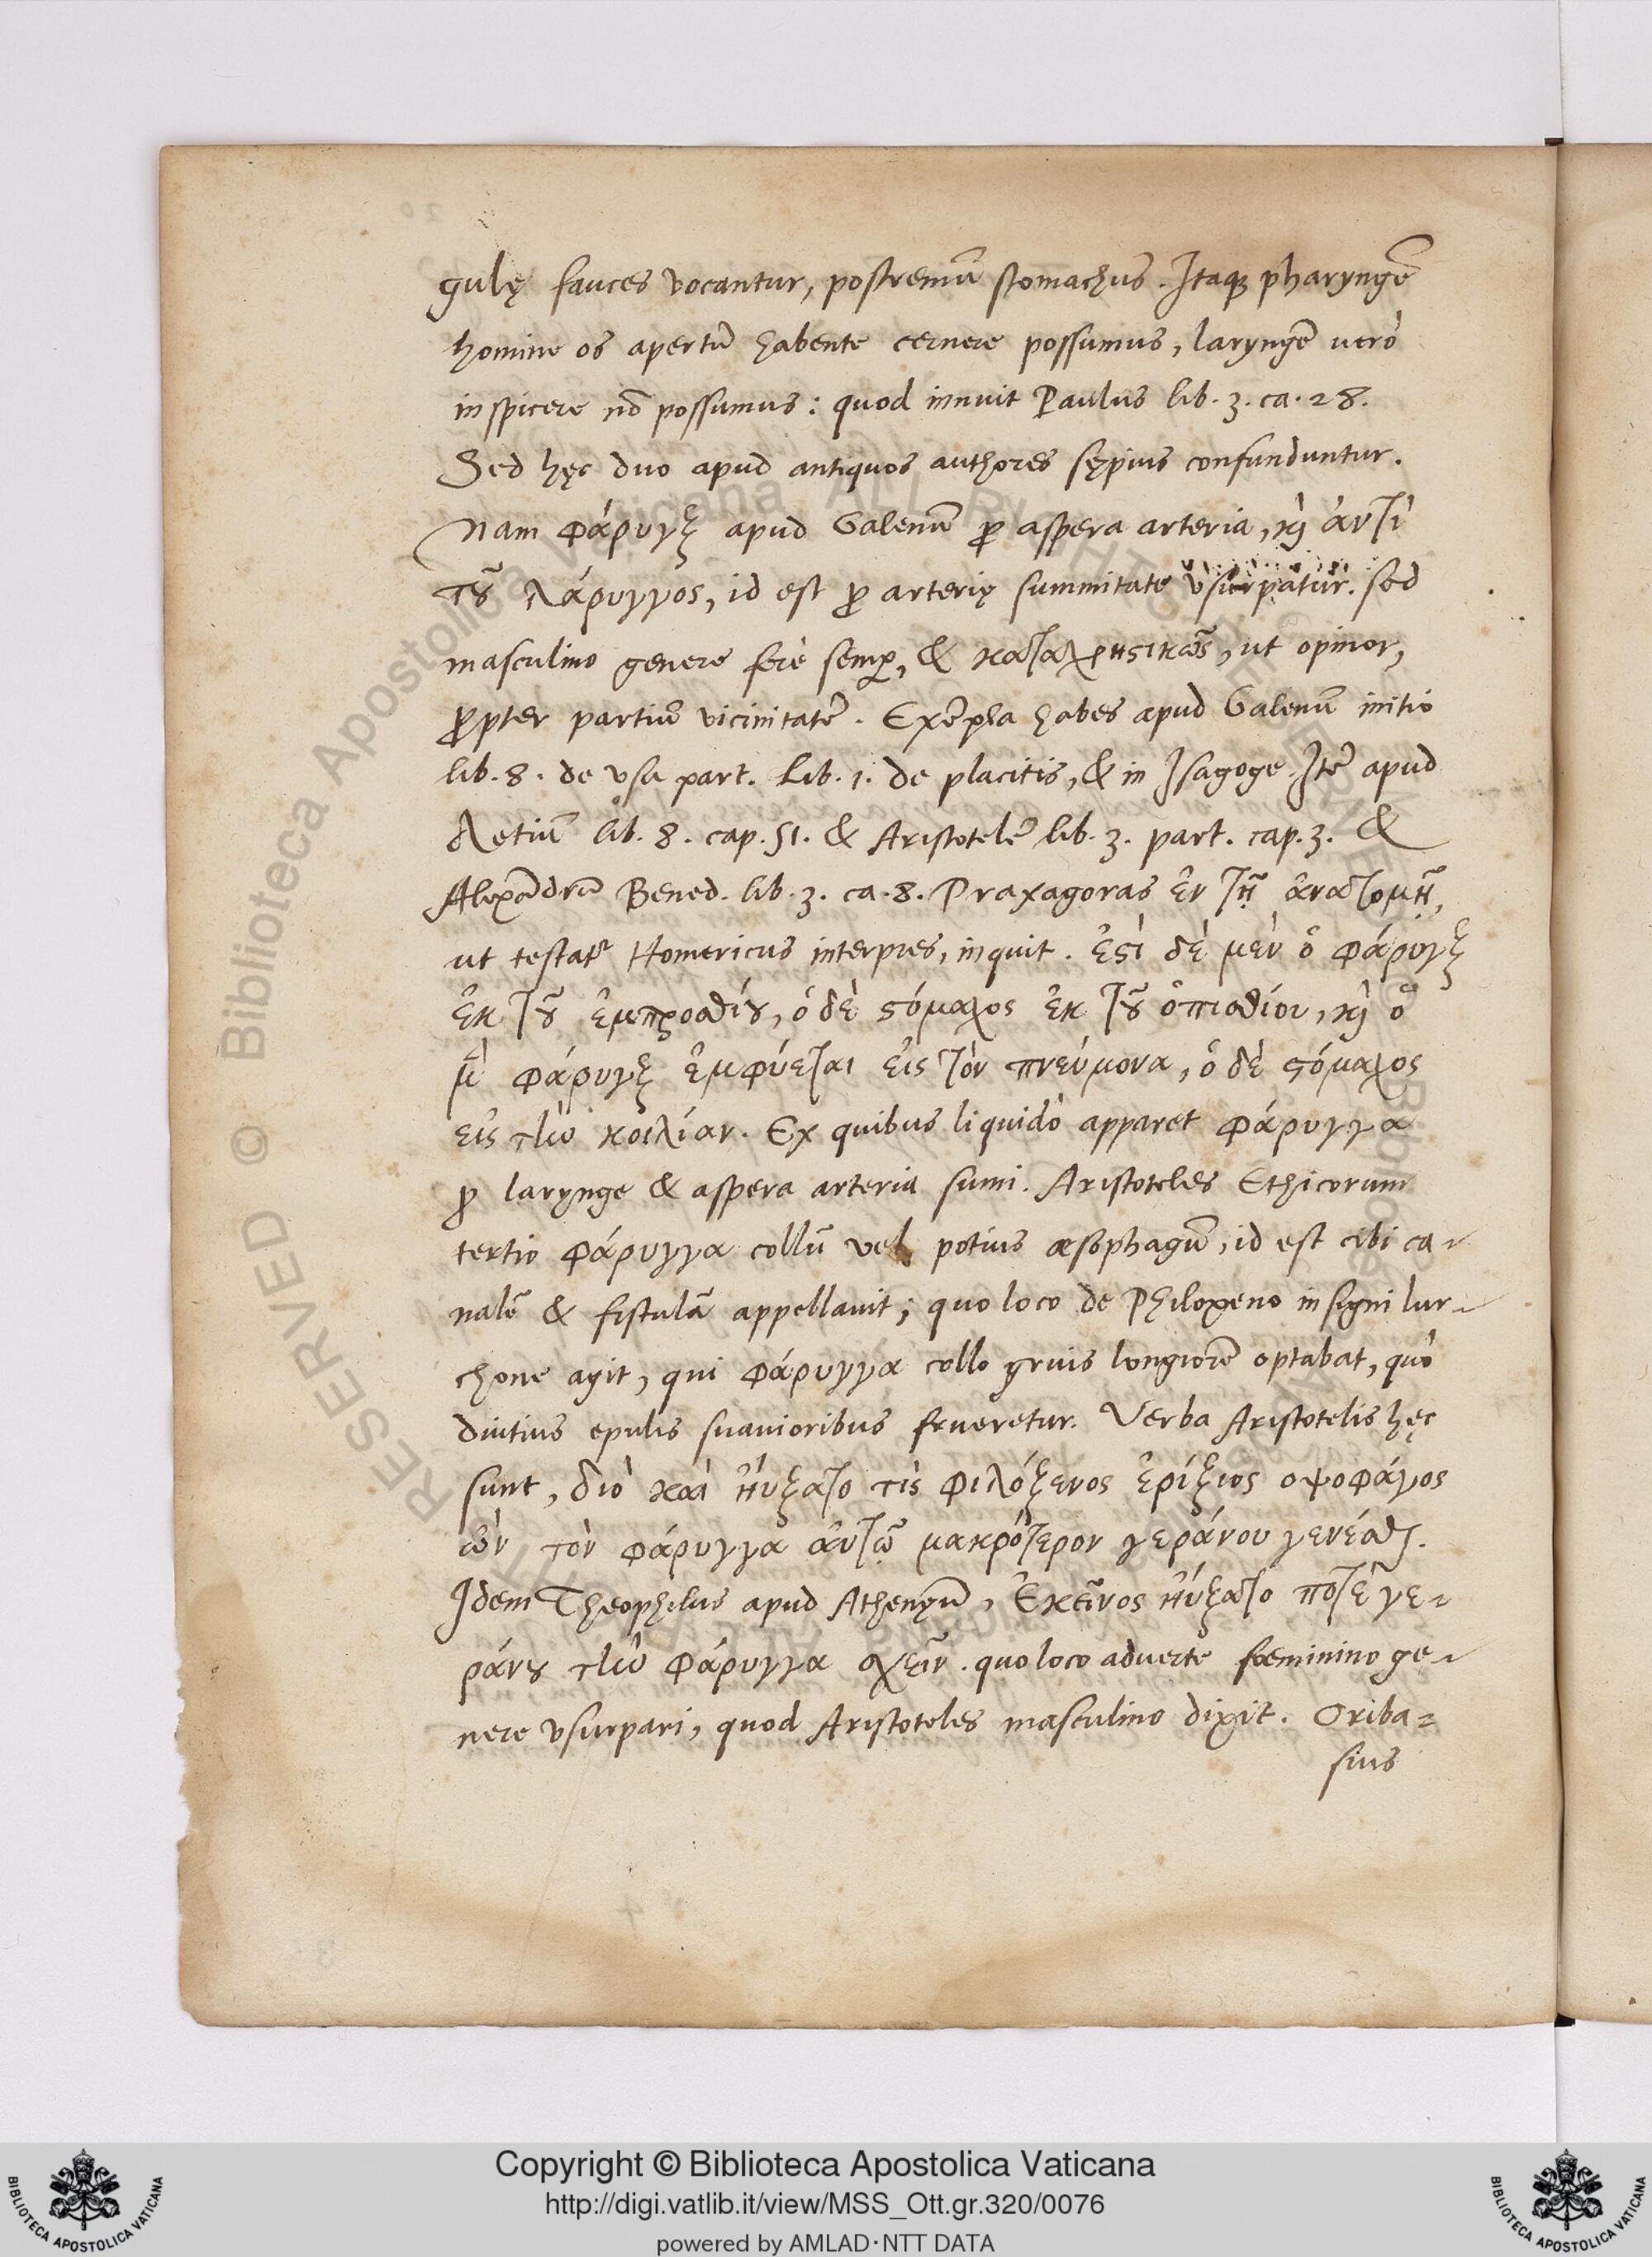 gulę fauces vocantur, postremũ stomachus. Itaqꝫ pharyngẽ
homine os apertũ habente cernere possumus, laryngẽ uerò
inspicere nõ possumus: quod innuit Paulus lib. 3. ca. 28.
Sed hęc duo apud antiquos authores sępius confunduntur.
Nam φάρυγξ apud Galenũ ꝓ aspera arteria, ϗ̀ ἀντὶ
τȣ͂ λάρυγγος, id est ꝓ arterię summitate vsurpatur. sed
masculino genere ferè semꝑ, & καταχρηϛικῶς, ut opinor,
ꝓpter partiũ vicinitatẽ. Exẽpla habes apud Galenũ initio
lib. 8. de vsu part. Lib. 1. de placitis, & in Isagoge. Itẽ apud
Aetiũ lib. 8. cap. 51. & Aristotelẽ lib. 3. part. cap. 3. &
Alexãdrũ Bened. lib. 3. ca. 8. Praxagoras ἐν τῇ ἀνατομῇ,
ut testatr̃ Homericus interpres, inquit. ἐϛὶ δὲ μὲν ὁ φάρυγξ
ἐκ τȣ͂ ἐμπροσθίȣ, ὁ δὲ ϛόμαχος ἐκ τȣ͂ ὀπισθίου, ϗ̀ ὁ
μ̀ φάρυγξ ἐμφύεται εἰς τὸν πνεύμονα, ὁ δὲ ϛόμαχος
εἰς τὴν κοιλίαν. Ex quibus liquidò apparet φάρυγγα
ꝓ larynge & aspera arteria sumi. Aristoteles Ethicorum
tertio φάρυγγα collũ vel potius æsophagũ, id est cibi ca-
nalẽ & fistulã appellauit; quo loco de Philoxeno insigni lur-
chone agit, qui φάρυγγα collo gruis longiorẽ optabat, quò
diutius epulis suauioribus frueretur. Verba Aristotelis hęc
sunt, διὸ καὶ ηὔξατο τὶς φιλόξενος ἐρίξιος οψοφάγος
ὢν τὸν φάρυγγα ἀυτῷ μακρότερον γεράνου γενέσθ.
Idem Theophilus apud Athenęũ, Ἐκεῖνος ηὔξατο ποτὲ γε-
ράνȣ τὴν φάρυγγα σχεῖν. quo loco aduerte foeminino ge-
nere vsurpari, quod Aristoteles masculino dixit. Oriba=
sius
Copyright © Biblioteca Apostolica Vaticana
http://digi.vatlib.it/view/MSS_Ott.gr.320/0076
powered by AMLAD·NTT DATA